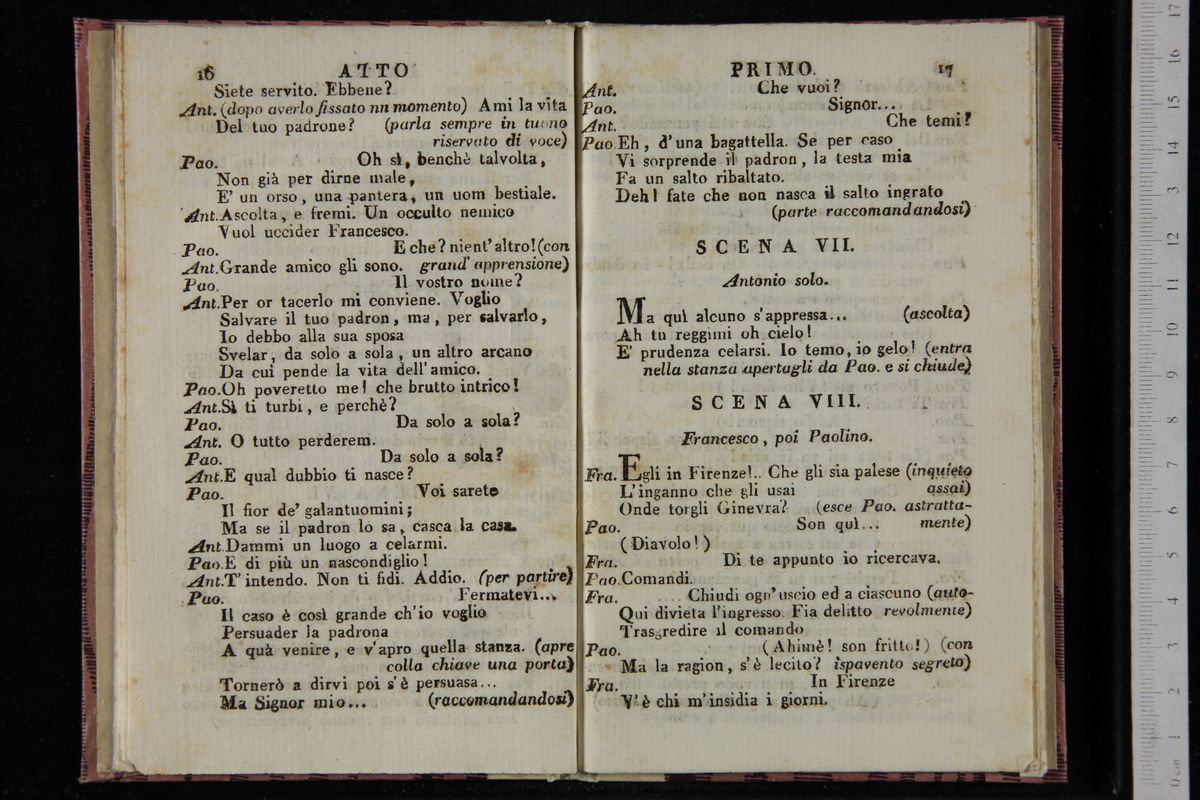 16 ATTO
Siete servito. Ebbene?
Ant. (dopo averlo fissato nn momento) Ami la vita
Del tuo padrone? (parla sempre in tuono
riservato di voce)
Pao. Oh sì, benchè talvolta,
Non già per dirne male,
E' un orso, una pantera, un uom bestiale.
Ant. Ascolta, e fremi. Un occulto nemico
Vuol uccider Francesco.
Pao. E che? nient' altro! (con
Ant. Grande amico gli sono. grand' apprensione)
Pao. Il vostro nome?
Ant. Per or tacerlo mi conviene. Voglio
Salvare il tuo padron, ma, per salvarlo,
Io debbo alla sua sposa
Svelar, da solo a sola, un altro arcano
Da cui pende la vita dell' amico.
Pao. Oh poveretto me! che brutto intrico!
Ant. Sì ti turbi, e perchè?
Pao. Da solo a sola?
Ant. O tutto perderem.
Pao. Da solo a sola?
Ant. E qual dubbio ti nasce?
Pao. Voi sarete
Il fior de' galantuomini;
Ma se il padron lo sa, casca la casa.
Ant. Dammi un luogo a celarmi.
Pao. E di più un nascondiglio!
Ant. T' intendo. Non ti fidi. Addio. (per partire)
Pao. Fermatevi...
Il caso è così grande ch'io voglio
Persuader la padrona
A quà venire, e v'apro quella stanza. (apre
colla chiave una porta)
Tornerò a dirvi poi s'è persuasa...
Ma Signor mio... (raccomandandosi)
PRIMO. 17
Ant. Che vuoi?
Pao. Signor...
Ant. Che temi?
Pao Eh, d'una bagattella. Se per caso
Vi sorprende il padron, la testa mia
Fa un salto ribaltato.
Deh! fate che non nasca il salto ingrato
(parte raccomandandosi)
SCENA VII.
Antonio solo.
Ma quì alcuno s'appressa... (ascolta)
Ah tu reggimi oh cielo!
E' prudenza celarsi. Io temo, io gelo! (entra
nella stanza apertagli da Pao. e si chiude)
SCENA VIII.
Francesco, poi Paolino.
Fra. Egli in Firenze!.. Che gli sia palese (inquieto
L'inganno che gli usai assai)
Onde torgli Ginevra? (esce Pao. astratta-
Pao. Son quì... mente)
(Diavolo!)
Fra. Di te appunto io ricercava.
Pao. Comandi.
Fra. Chiudi ogn' uscio ed a ciascuno (auto-
Qui divieta l'ingresso. Fia delitto revolmente)
Trasgredire il comando
Pao. (Ahimè! son fritto!) (con
Ma la ragion, s'è lecito? ispavento segreto)
Fra. In Firenze
V'è chi m'insidia i giorni.
17
16
15
14
13
12
11
10
9
8
7
6
5
4
3
2
1
0 cm